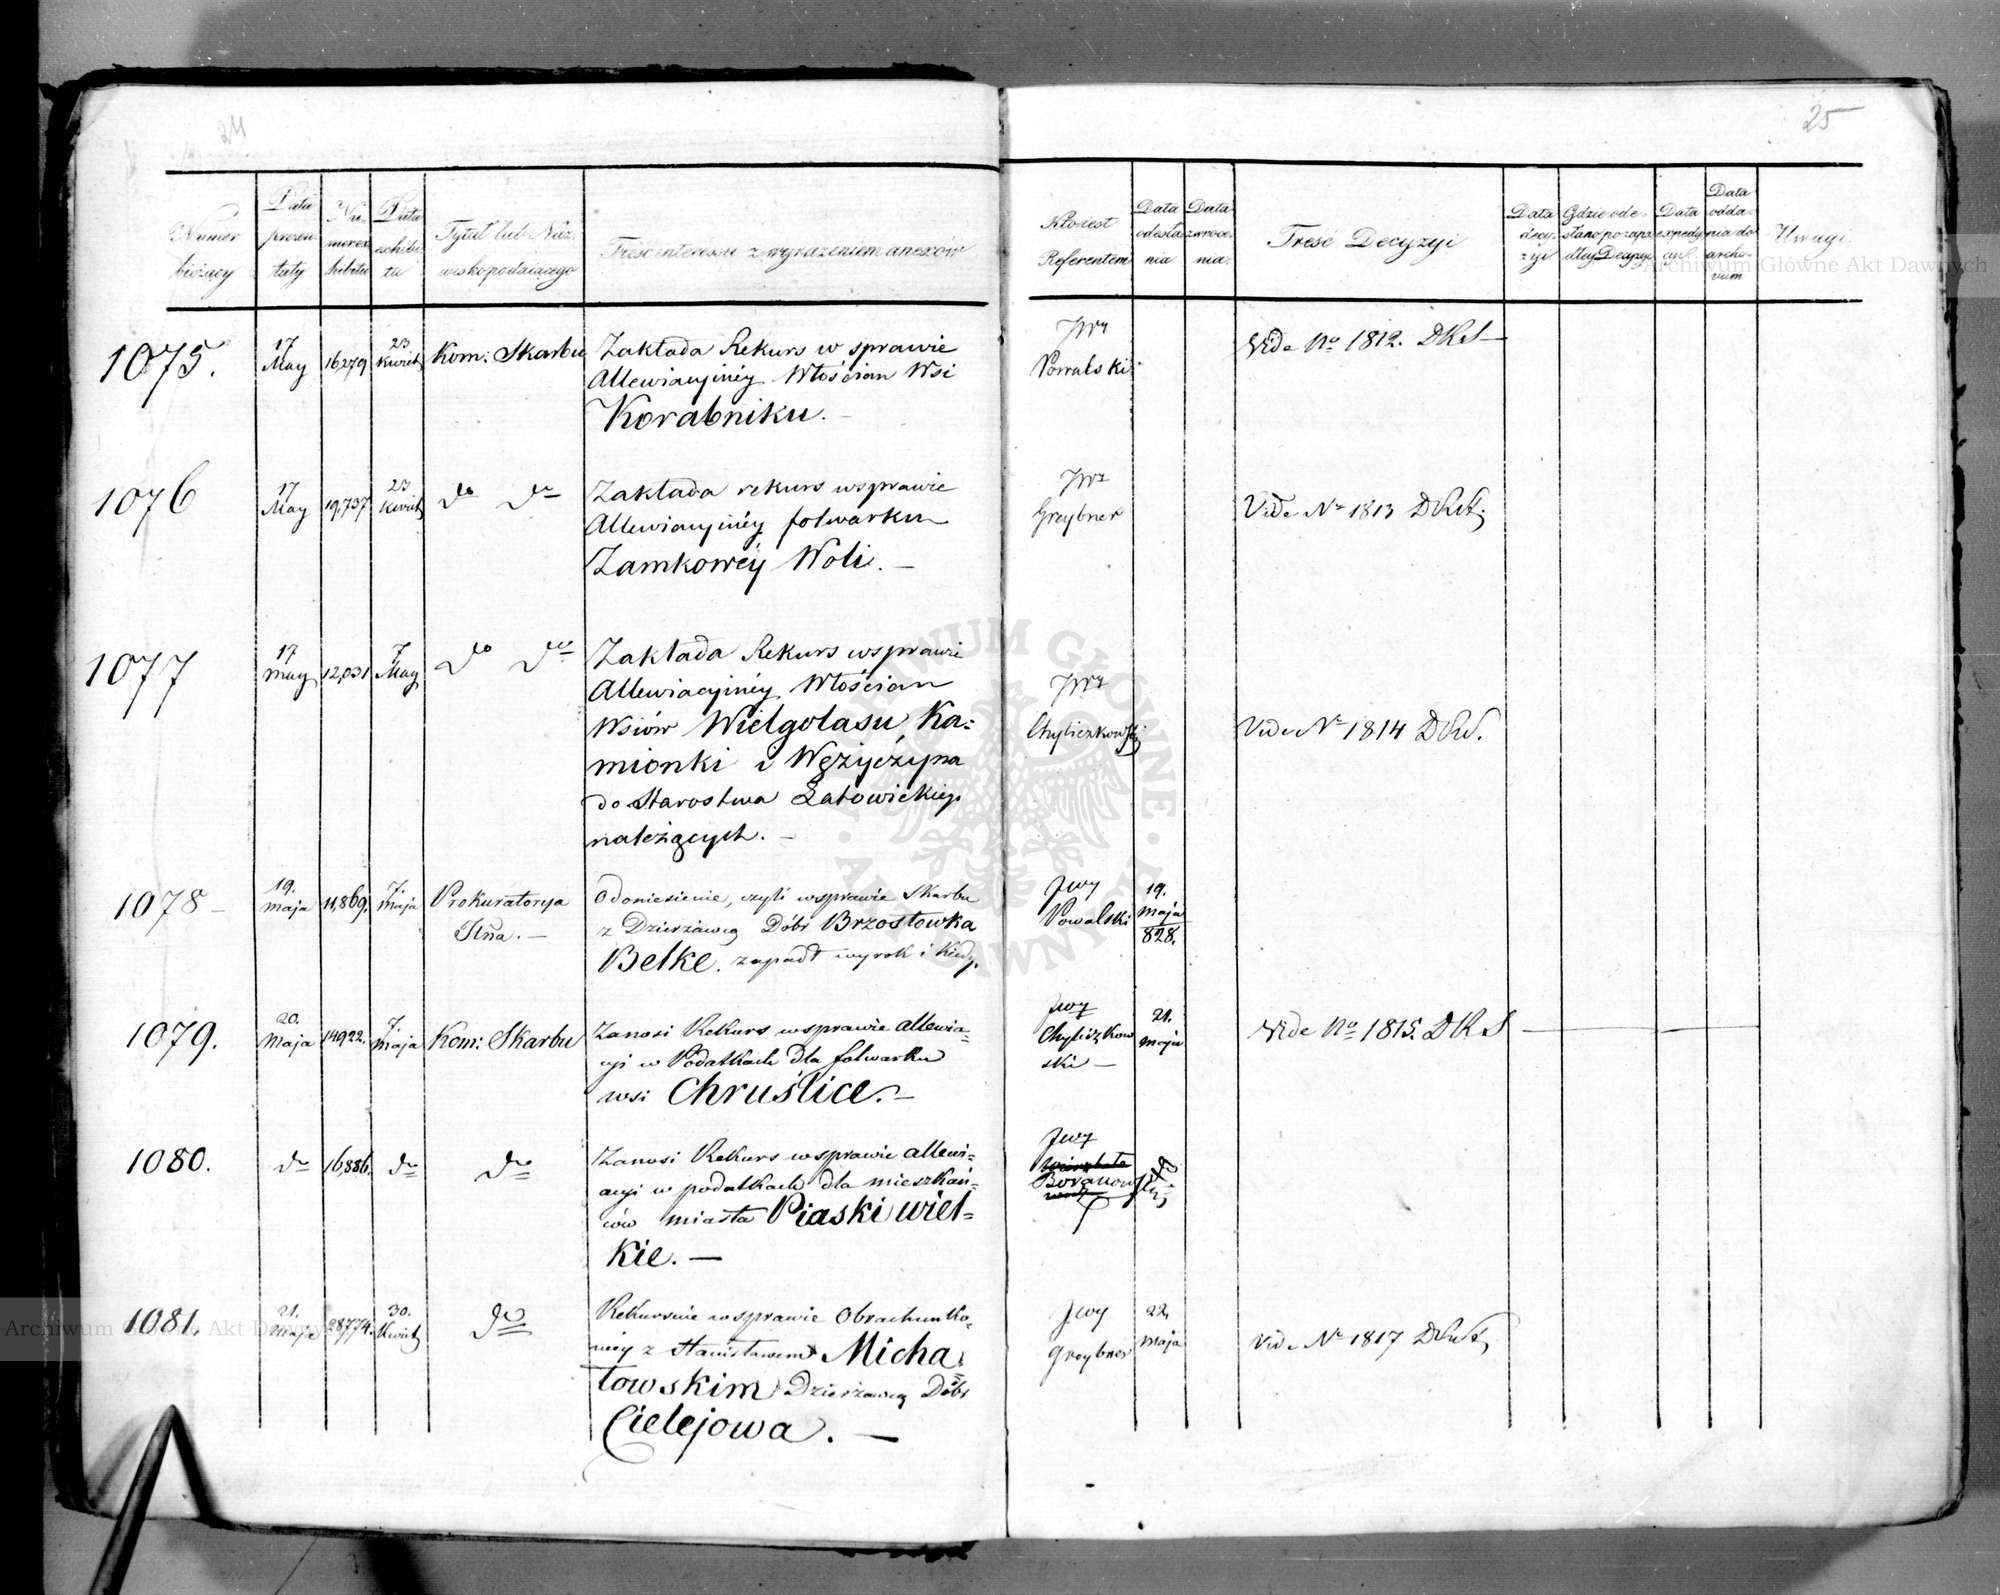 24
25
Numer bieżący
Data prezentaty
Numer exhibitu
Data exhibitu
Tytuł lub Naz-
wisko podaiącego
Treść interessu z wyrażeniem anexów
Kto iest Referentem
Data odesłania
Data zwrócenia
Treść Decyzyi
Data decyzyi
Gdzie ode-
słano po zapa-
dłey Decyzyi
Data expedycyi
Data oddania do archivum
Uwagi
1075.
17 May
16279
23 Kwiet
Kom: Skarbu
Zakłada Rekurs w sprawie
Allewiacyinéy Włościan Wsi
Korabniku. —
JWy
Powalski
Vide No 1812. DKS —
1076
17 May
19,737
23 Kwiet
do do
Zakłada rekurs w sprawie
Allewiacyinéy folwarku
Zamkowéy Woli. —
JWy
Greybner
Vide No 1813
1077
17 May
12,031
7 May
do do
Zakłada Rekurs w sprawie
Allewiacyinéy Włościan
Wsiów Wielgolasu, Ka=
mionki i Wężyczyna
do Starostwa Latowickiego
należących. —
JWy
Chyliczkowski
Vide No 1814 DKS.
1078 —
19. maja
11,869.
7. maja
Prokuratorya
—
O doniesienie, czyli w sprawie Skarbu
z Dzierżawcą Dóbr Brzostowka
Belke. zapadł wyrok i kiedy.
JWy
Powalski
19. maja
828.
1079.
20. maja
14922.
7. maja
Kom: Skarbu
Zanosi Rekurs w sprawie allewia=
cyi w Podatkach dla folwarku
wsi Chruślice. —
JWy
Chyliczkow
ski —
21. maja
Vide No 1815. DKS
1080.
do
16,886.
do
do
Zanosi Rekurs w sprawie allewi=
acyi w podatkach dla mieszkań=
ców miasta Piaski wiel=
kie. —
JWy
1081.
21. maja
28774.
30. Kwiet
do
Rekursuie w sprawie Obrachunko=
wéy z Stanisławem Micha
łowskim Dzierżawcą Dóbr
Cielejowa. —
JWy
Greybner
22. maja
Vide No 1817
Archiwum Główne Akt Dawnych
Archiwum Główne Akt Dawnych
ARCHIWUM GŁÓWNE AKT DAWNYCH